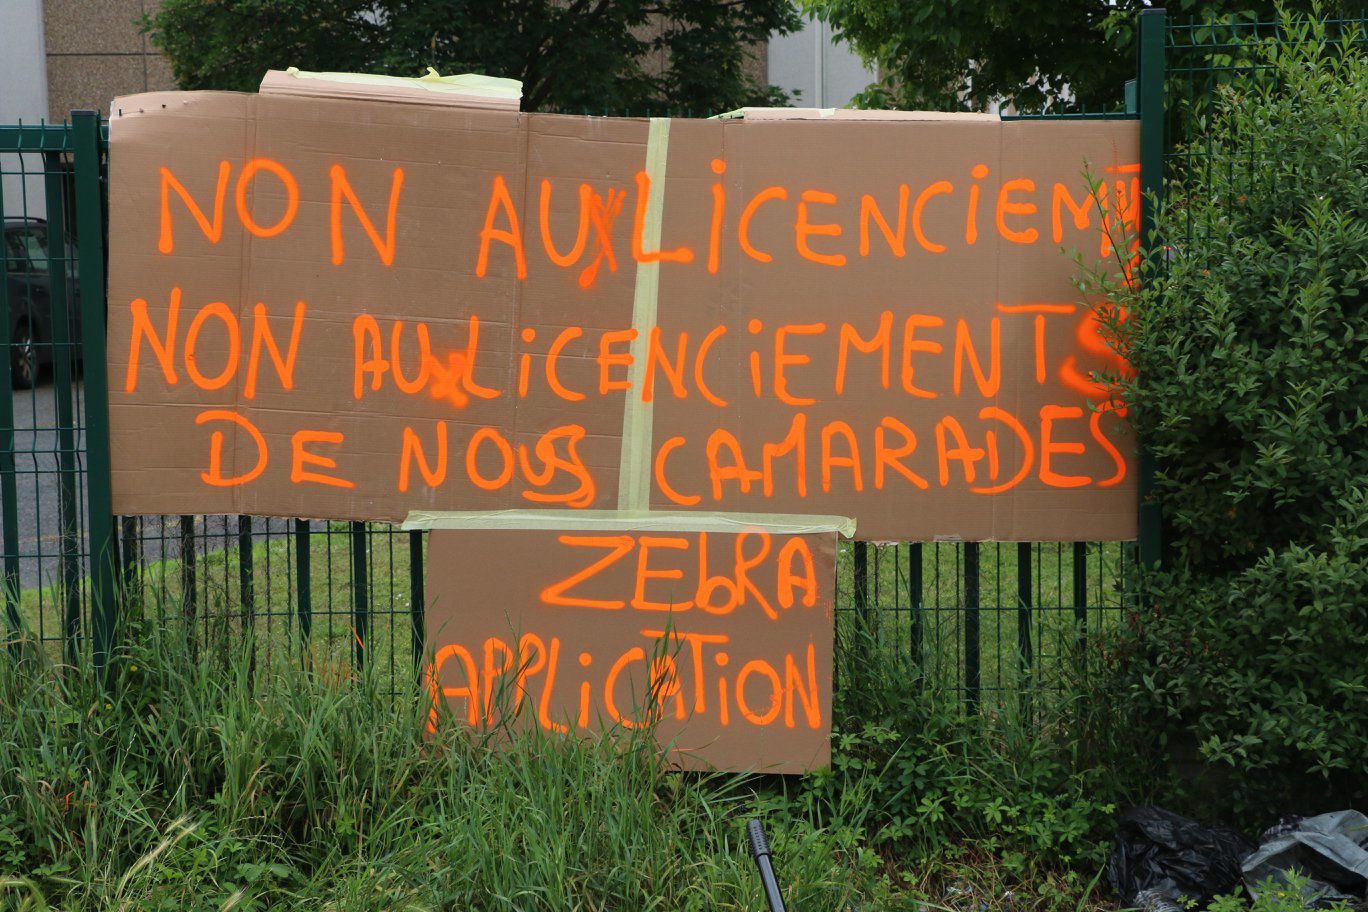 NON AUX LICENCIEMT
NON AUX LICENCIEMENTS
DE NOUS CAMARADES
ZEbRA
APPLICATION